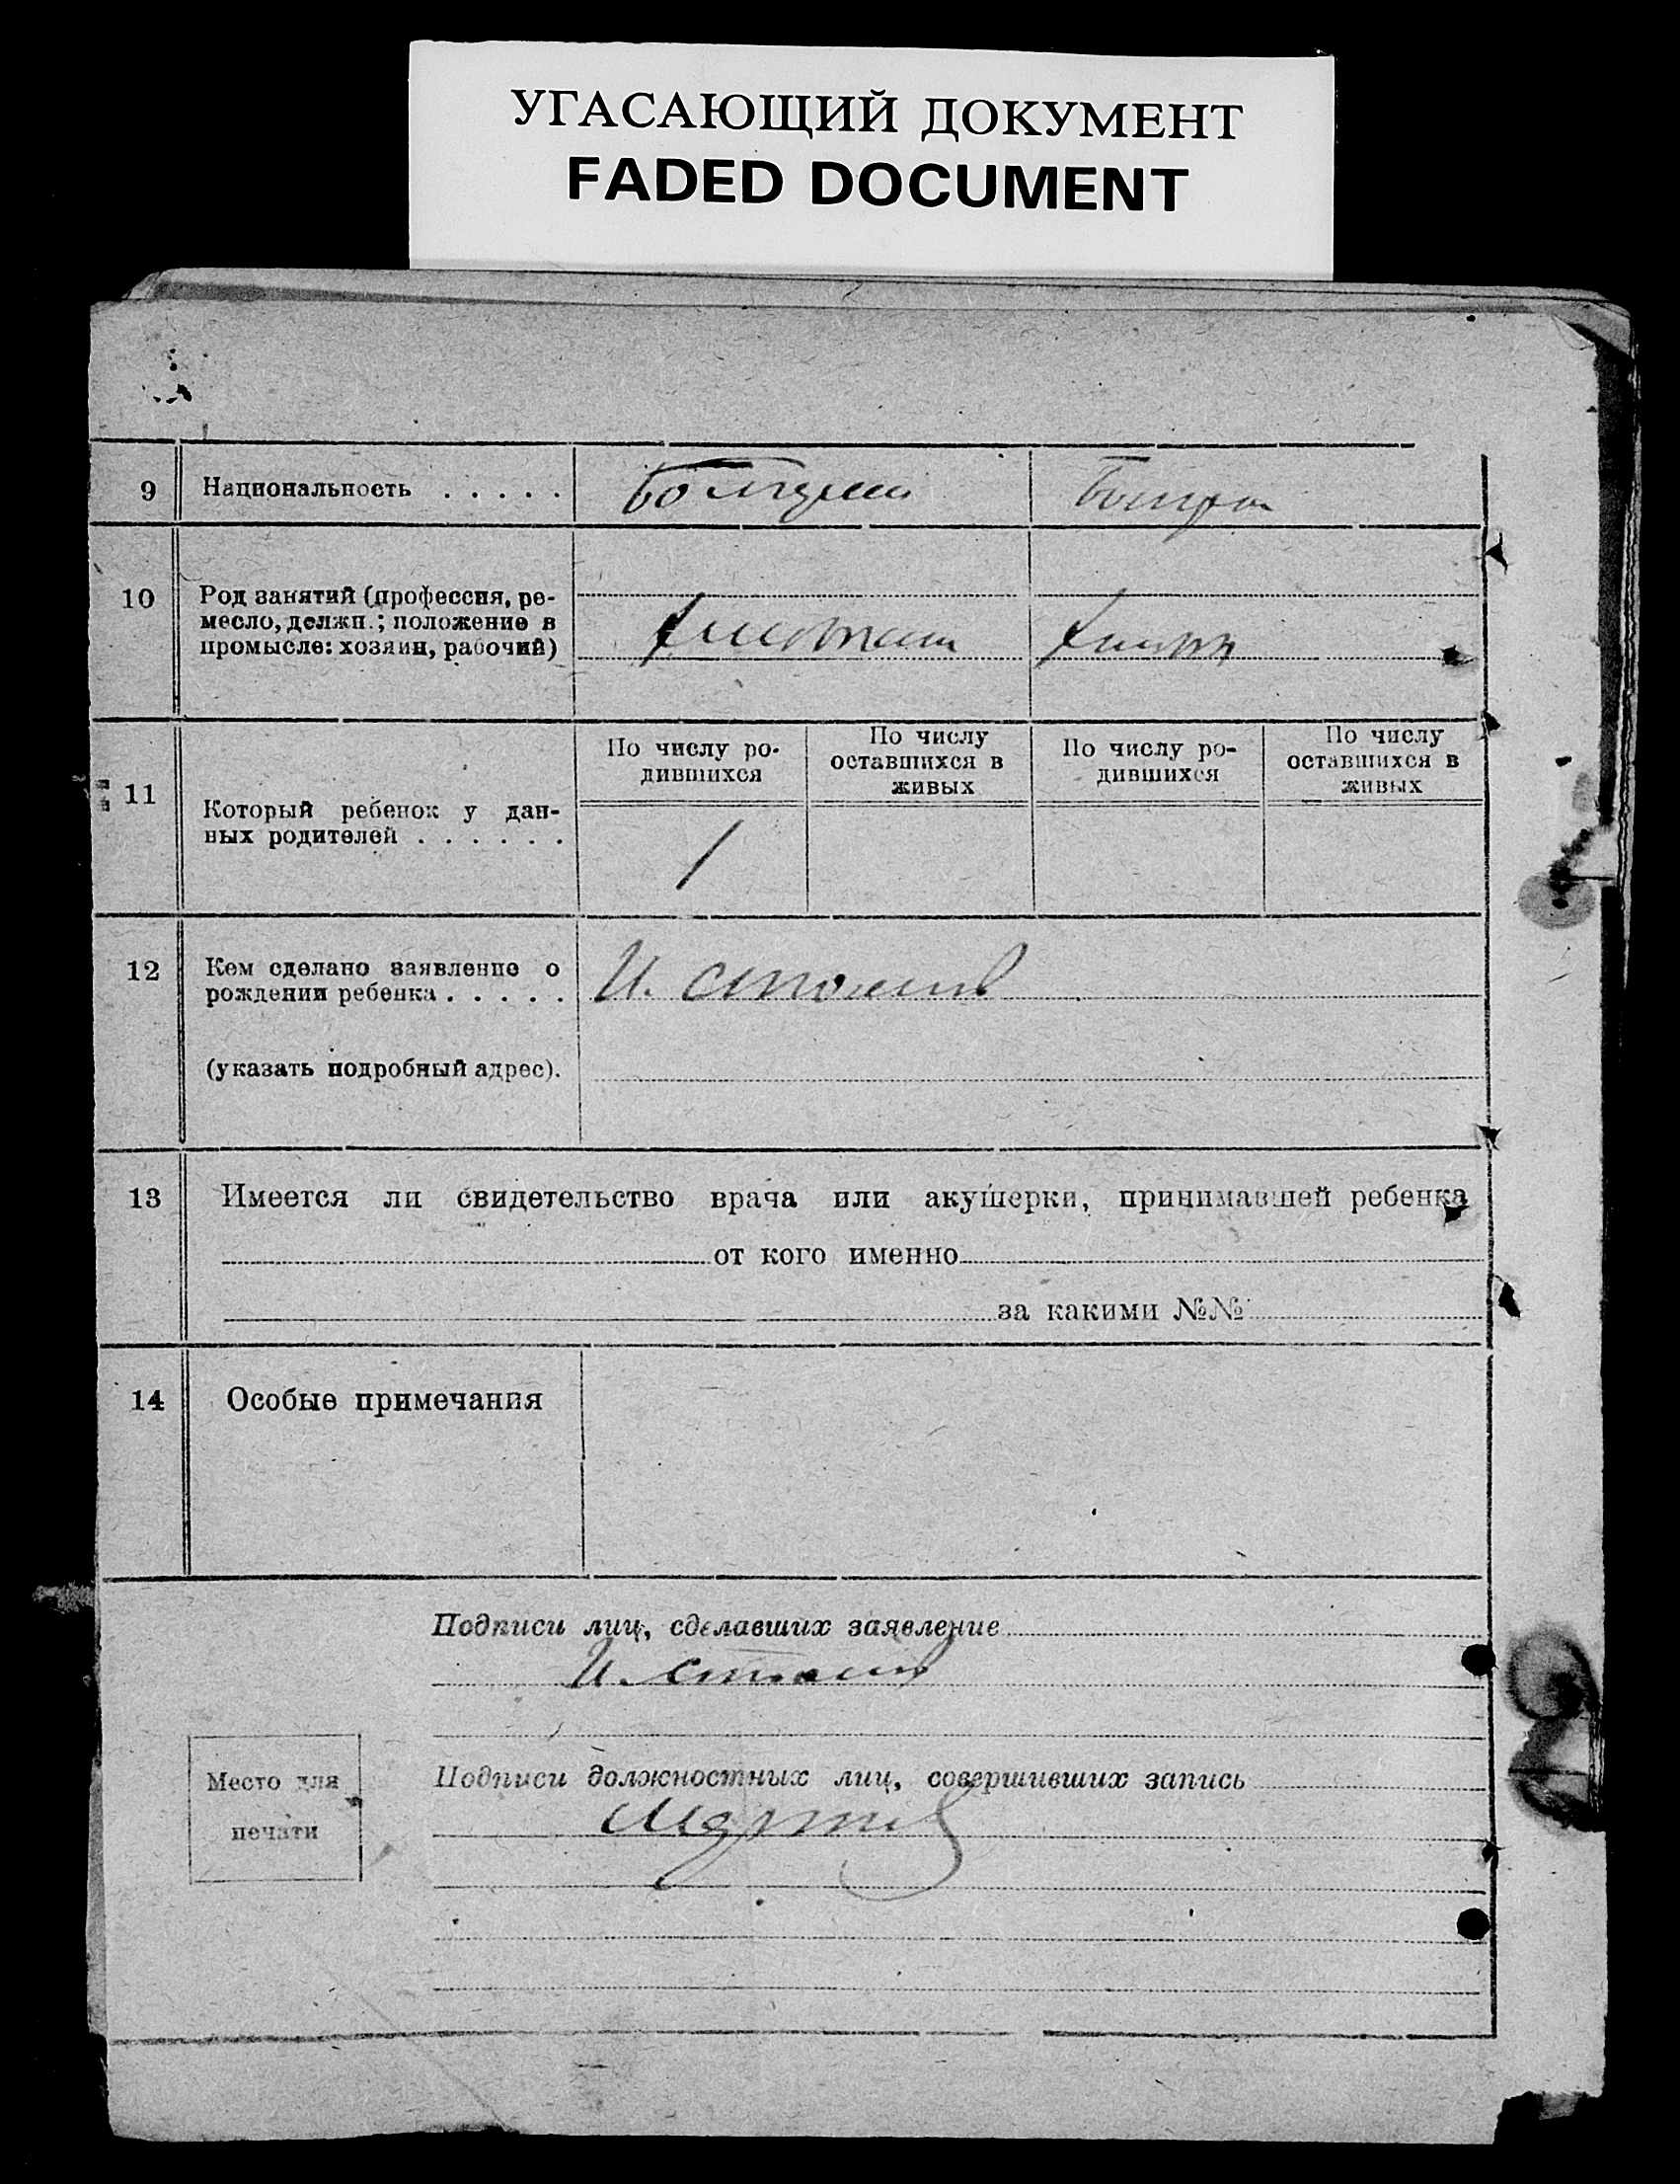 УГАСАЮЩИЙ ДОКУМЕНТ
FADED DOCUMENT
9 Национальность . . . . .
10 Род занятий (профессия, ре-
месло, должн.; положение в
промысле: хозяин, рабочий)
11 Который ребенок у дан-
ных родителей . . . . . .
По числу ро-
дившихся
По числу
оставшихся в
живых
По числу ро-
дившихся
По числу
оставшихся в
живых
1
12 Кем сделано заявление о
рождении ребенка . . . . .
И.
(указать подробный адрес).
13 Имеется ли свидетельство врача или акушерки, принимавшей ребенка
от кого именно
за какими №№
14 Особые примечания
Подписи лиц, сделавших заявление
И.
Место для
печати
Подписи должностных лиц, совершивших запись